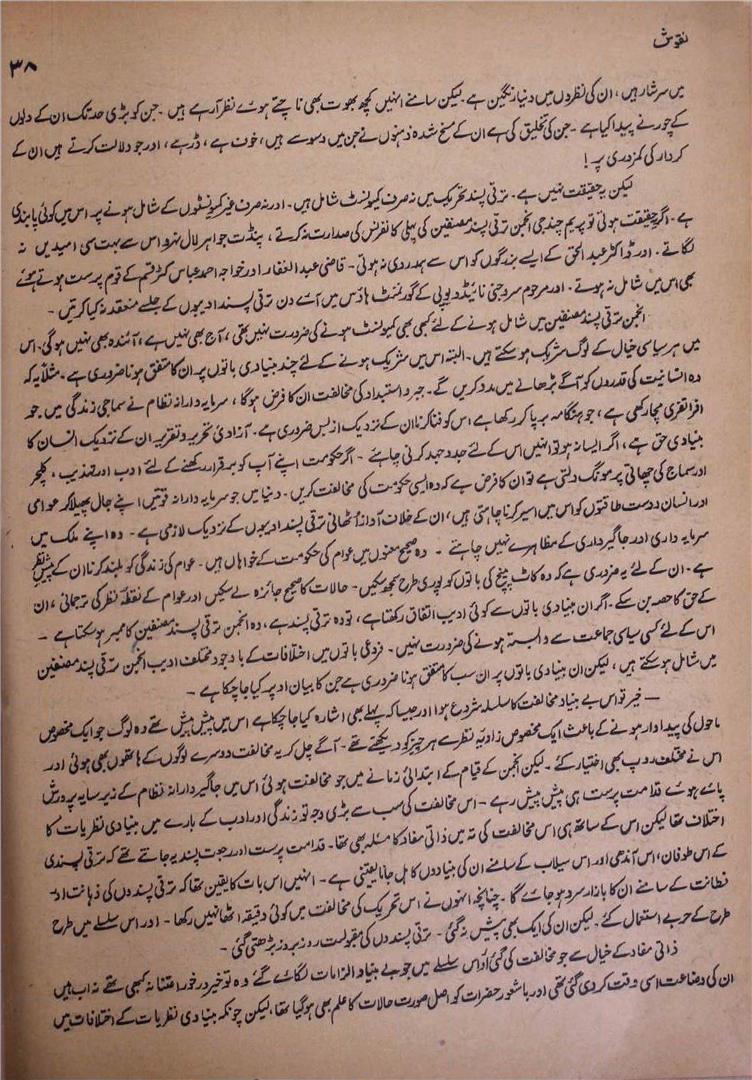 نقوش
۳۸
میں سرشار ہیں، ان کی نظروں میں دنیا رنگین ہے۔ لیکن سامنے انہیں کچھ بھوت بھی ناچتے ہوئے نظر آ رہے ہیں۔ جن کو بڑی حد تک ان کے دلوں
کے چور نے پیدا کیا ہے۔ جن کی تخلیق کی ہے ان کے مسخ شدہ ذہنوں نے جن میں وسوسے ہیں، خوف ہے، ڈر ہے، اور جو دلالت کرتے ہیں ان کے
کردار کی کمزوری پر!
لیکن یہ حقیقت نہیں ہے۔ ترقی پسند تحریک میں نہ صرف کمیونسٹ شامل ہیں۔ اور نہ صرف غیر کمیونسٹوں کے شامل ہونے پر اس میں کوئی پابندی
ہے۔ اگر یہ حقیقت ہوتی تو پریم چند جی انجمن ترقی پسند مصنفین کی پہلی کانفرنس کی صدارت نہ کرتے، پنڈت جواہر لال نہرو اس سے بہت سی امیدیں نہ
لگاتے۔ اور ڈاکٹر عبد الحق کے ایسے بزرگوں کو اس سے ہمدردی نہ ہوتی۔ قاضی عبد الغفار اور خواجہ احمد عباس کٹر قسم کے قوم پرست ہوتے ہوئے
بھی اس میں شامل نہ ہوتے۔ اور مرحوم سروجنی نائیڈو یوپی کے گورنمنٹ ہاؤس میں آئے دن ترقی پسند ادیبوں کے جلسے منعقد نہ کیا کرتیں۔
انجمن ترقی پسند مصنفین میں شامل ہونے کے لئے کبھی بھی کمیونسٹ ہونے کی ضرورت نہیں تھی، آج بھی نہیں ہے، آئندہ بھی نہیں ہوگی۔ اس
میں ہر سیاسی خیال کے لوگ شریک ہو سکتے ہیں۔ البتہ اس میں شریک ہونے کے لئے چند بنیادی باتوں پر ان کا متفق ہونا ضروری ہے۔ مثلاً یہ کہ
وہ انسانیت کی قدروں کو آگے بڑھانے میں مدد کریں گے۔ جبر و استبداد کی مخالفت ان کا فرض ہوگا، سرمایہ دارانہ نظام نے سماجی زندگی میں جو
افراتفری مچا رکھی ہے، جو ہنگامہ برپا کر رکھا ہے اس کو فنا کرنا ان کے نزدیک ازبس ضروری ہے۔ آزادیٔ تحریر و تقریر ان کے نزدیک انسان کا
بنیادی حق ہے، اگر ایسا نہ ہو تو انہیں اس کے لئے جدوجہد کرنی چاہئے۔ اگر حکومت اپنے آپ کو برقرار رکھنے کے لئے ادب اور تہذیب، کلچر
اور سماج کی چھاتی پر مونگ دلتی ہے تو ان کا فرض ہے کہ وہ ایسی حکومت کی مخالفت کریں۔ دنیا میں جو سرمایہ دارانہ قوتیں اپنے جال پھیلا کر عوامی
اور انسان دوست طاقتوں کو اس میں اسیر کرنا چاہتی ہیں، ان کے خلاف آواز اٹھانی ترقی پسند ادیبوں کے نزدیک لازمی ہے۔ وہ اپنے ملک میں
سرمایہ داری اور جاگیرداری کے مظاہرے نہیں چاہتے۔ وہ صحیح معنوں میں عوام کی حکومت کے خواہاں ہیں۔ عوام کی زندگی کو بلند کرنا ان کے پیش نظر
ہے۔ ان کے لئے یہ ضروری ہے کہ وہ کاٹ پیچ کی باتوں کو پوری طرح سمجھ سکیں۔ حالات کا صحیح جائزہ لے سکیں اور عوام کے نقطۂ نظر کی ترجمانی، ان
کے حق کا حصہ بن سکے۔ اگر ان بنیادی باتوں سے کوئی ادیب اتفاق رکھتا ہے، تو وہ ترقی پسند ہے، وہ انجمن ترقی پسند مصنفین کا ممبر ہو سکتا ہے۔
اس کے لئے کسی سیاسی جماعت سے وابستہ ہونے کی ضرورت نہیں۔ فروعی باتوں میں اختلافات کے باوجود مختلف ادیب انجمن ترقی پسند مصنفین
میں شامل ہو سکتے ہیں، لیکن ان بنیادی باتوں پر ان سب کا متفق ہونا ضروری ہے جن کا بیان اوپر کیا جا چکا ہے۔
— خیر تو اس بے بنیاد مخالفت کا سلسلہ شروع ہوا اور جیسا کہ پہلے بھی اشارہ کیا جا چکا ہے اس میں پیش پیش تھے وہ لوگ جو ایک مخصوص
ماحول کی پیداوار ہونے کے باعث ایک مخصوص زاویۂ نظر سے ہر چیز کو دیکھتے تھے۔ آگے چل کر یہ مخالفت دوسرے لوگوں کے ہاتھوں بھی ہوئی اور
اس نے مختلف روپ بھی اختیار کئے۔ لیکن انجمن کے قیام کے ابتدائی زمانے میں جو مخالفت ہوئی اس میں جاگیردارانہ نظام کے زیر سایہ پرورش
پائے ہوئے قدامت پرست ہی پیش پیش رہے۔ اس مخالفت کی سب سے بڑی وجہ تو زندگی اور ادب کے بارے میں بنیادی نظریات کا
اختلاف تھا لیکن اس کے ساتھ ہی اس مخالفت کی تہ میں ذاتی مفاد کا مسئلہ بھی تھا۔ قدامت پرست اور رجعت پسند یہ جانتے تھے کہ ترقی پسندی
کے اس طوفان، اس آندھی اور اس سیلاب کے سامنے ان کی بنیادوں کا ہل جانا یقینی ہے۔ انہیں اس بات کا یقین تھا کہ ترقی پسندوں کی ذہانت اور
فطانت کے سامنے ان کا بازار سرد ہو جائے گا۔ چنانچہ انہوں نے اس تحریک کی مخالفت میں کوئی دقیقہ اٹھا نہیں رکھا۔ اور اس سلسلے میں طرح
طرح کے حربے استعمال کئے۔ لیکن ان کی ایک بھی پیش نہ گئی۔ ترقی پسندوں کی مقبولیت روز بروز بڑھتی گئی۔
ذاتی مفاد کے خیال سے جو مخالفت کی گئی اور اس سلسلے میں جو بے بنیاد الزامات لگائے گئے وہ تو خیر درخور اعتنا نہ کبھی تھے نہ اب ہیں
ان کی وضاحت اسی وقت کر دی گئی تھی اور باشعور حضرات کو اصل صورت حالات کا علم بھی ہو گیا تھا، لیکن چونکہ بنیادی نظریات کے اختلافات میں